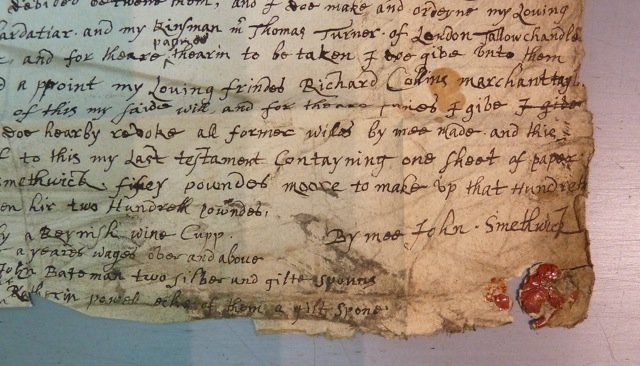 devided betweene them, and I doe make and ordeyne my Loving
and my Kinsman mr Thomas Turner of London Tallow chandler
paines
and for theare therin to be taken I doe give unto them
a point my Loving frindes Richard Collins marchanttayl
of this my saide will and for theare paines I give I give
doe hearby revoke al former wills by mee made and this
to this my Last testament Contayning one sheet of paper
Smethwick fiftey powndes moore to make up that Hundreth
hir two Hundreth powndes,
a Reynish wine Cupp. By mee John Smethwick
a yeares wages over and above
John Bateman two silver and gilte spouns
Katherin powell eche of them a gilt spone